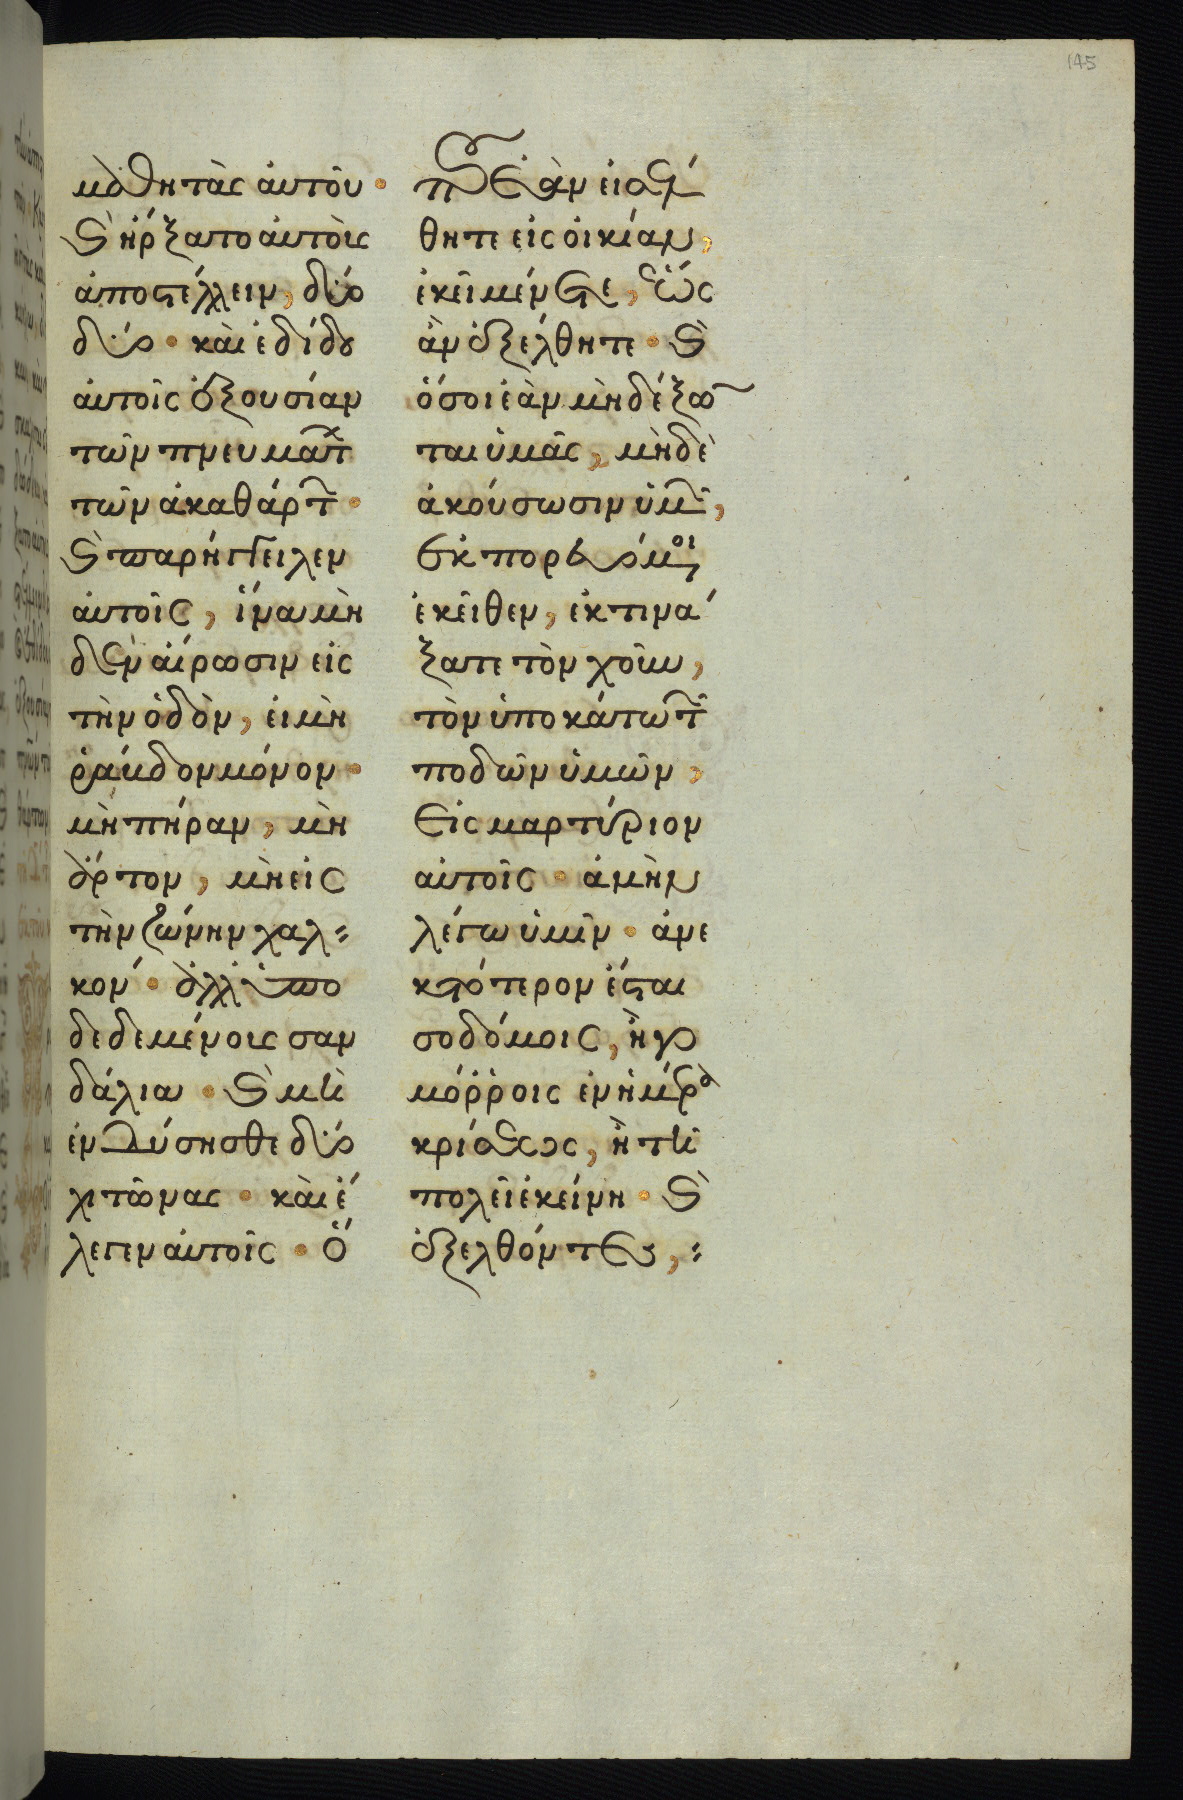 145
μαθητὰς ἀυτοῦ·
ϗ ἠρξατο ἀυτοὶς
ἀποστέλλειν, δύο
δύο· καὶ ἐδίδου
ἀυτοῖς ἐξουσίαν
τῶν πνευμάτ
τῶν ἀκαθάρτ·
ϗ παρήγγειλεν
ἀυτοῖς, ἵνα μὴ
δὲν ἀίρωσιν εἰς
τὴν ὁδὸν, ἐι μὴ
ῥάβδον μόνον·
μὴ πήραν, μὴ
ἄρτον, μὴ εἰς
τὴν ζώνην χαλ
κον· ἀλλ' ὑπο
δεδεμένοις σαν
δάλια· ϗ μὴ
ἐνδύσησθε δύο
χιτῶνας· καὶ ἔ
λεγεν ἀυτοῖς· Ὅ
που ἐὰν εἰσέλ
θητε εἰς ὀικίαν,
ἐκεῖ μένετε, ἕως
ἂν ἐξέλθητε· ϗ
ὅσοι ἐὰν μὴ δέξω
ται ὑμᾶς, μηδὲ
ἀκούσωσιν ὑμ,
ἐκπορευόμοι
ἐκεῖθεν, ἐκτινά
ξατε τὸν χοῦν,
τὸν ὑποκάτω τ
ποδῶν ὑμῶν,
εἰς μαρτύριον
αὐτοῖς· ἀμὴν
λέγω ὑμῖν· ἀνε
κτότερον ἔσται
σοδόμοις, ἢ γο
μόρροις ἐν ἡμέρα
κρίσεως, ἢ τῆ
πολει ἐκείνη· ϗ
ἐξελθόντες,